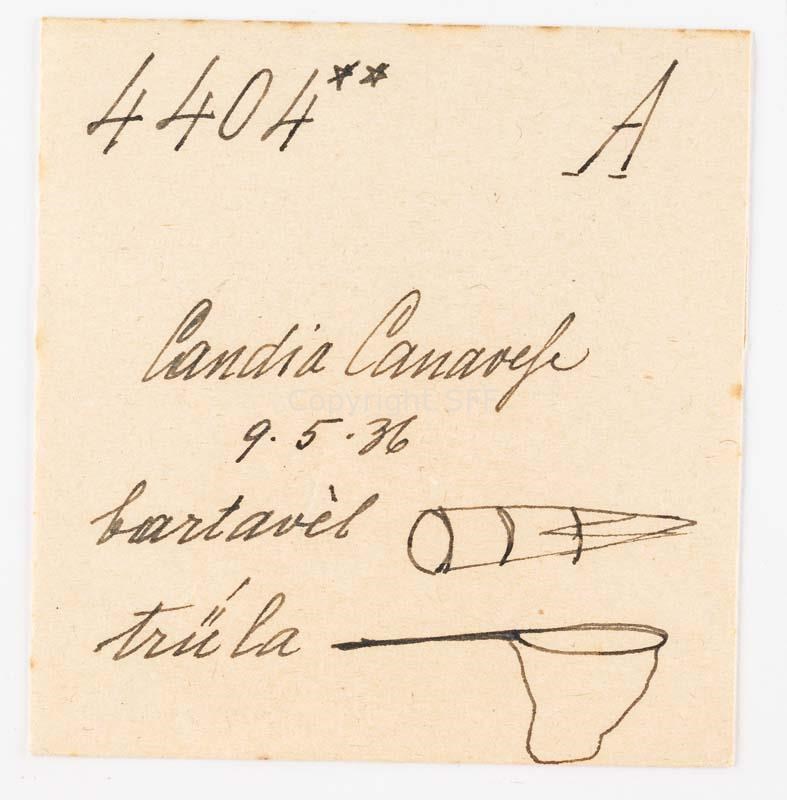 4404** A
Candia Canavese
Copyright SFF
9.5.36
bartavèl
trǘla